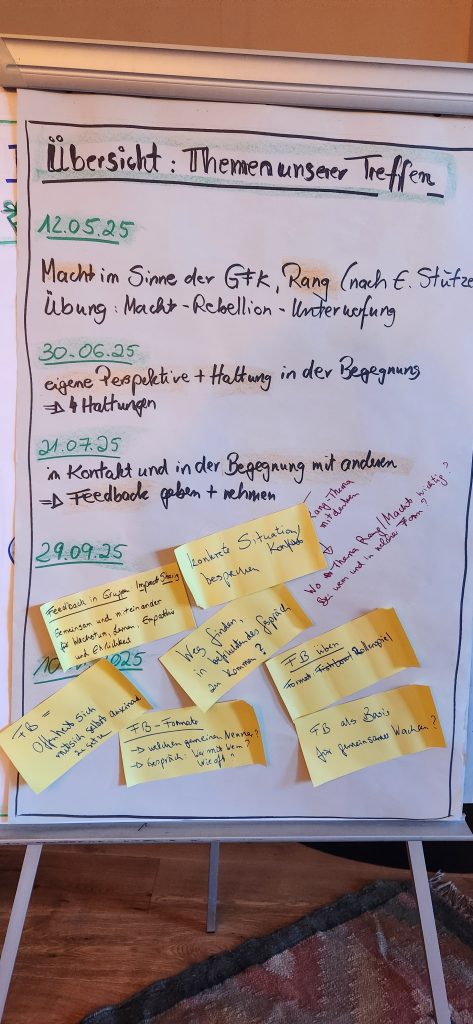 Übersicht: Themen unserer Treffen
12.05.25
Macht im Sinne der GFK, Rang (nach E. Stütze
Übung: Macht-Rebellion-Unterwerfung
30.06.25
eigene Perspektive + Haltung in der Begegnung
⇒ 4 Haltungen
21.07.25
in Kontakt und in der Begegnung mit anderen
⇒ Feedback geben + nehmen
Rang-Thema
mitdenken
Wo Thema Rang/Macht wichtig?
Bei wem und in welcher Form?
29.09.25
konkrete Situation/
Konflikte
besprechen
Feedback in Gruppen
Gemeinsam und miteinander
für Wachstum, Lernen, Empathie
und Ehrlichkeit
Weg finden,
in Gespräch
zu kommen?
FB üben
Format Rollenspiel
10. 2025
FB =
Offenheit sich
mit sich selbst
zu setzen
FB-Formate
→ welchen gemeinsamen Nenner?
→ Gespräch: Wer mit Wem?
Wie oft?
FB als Basis
für gemeinsames Wachsen?